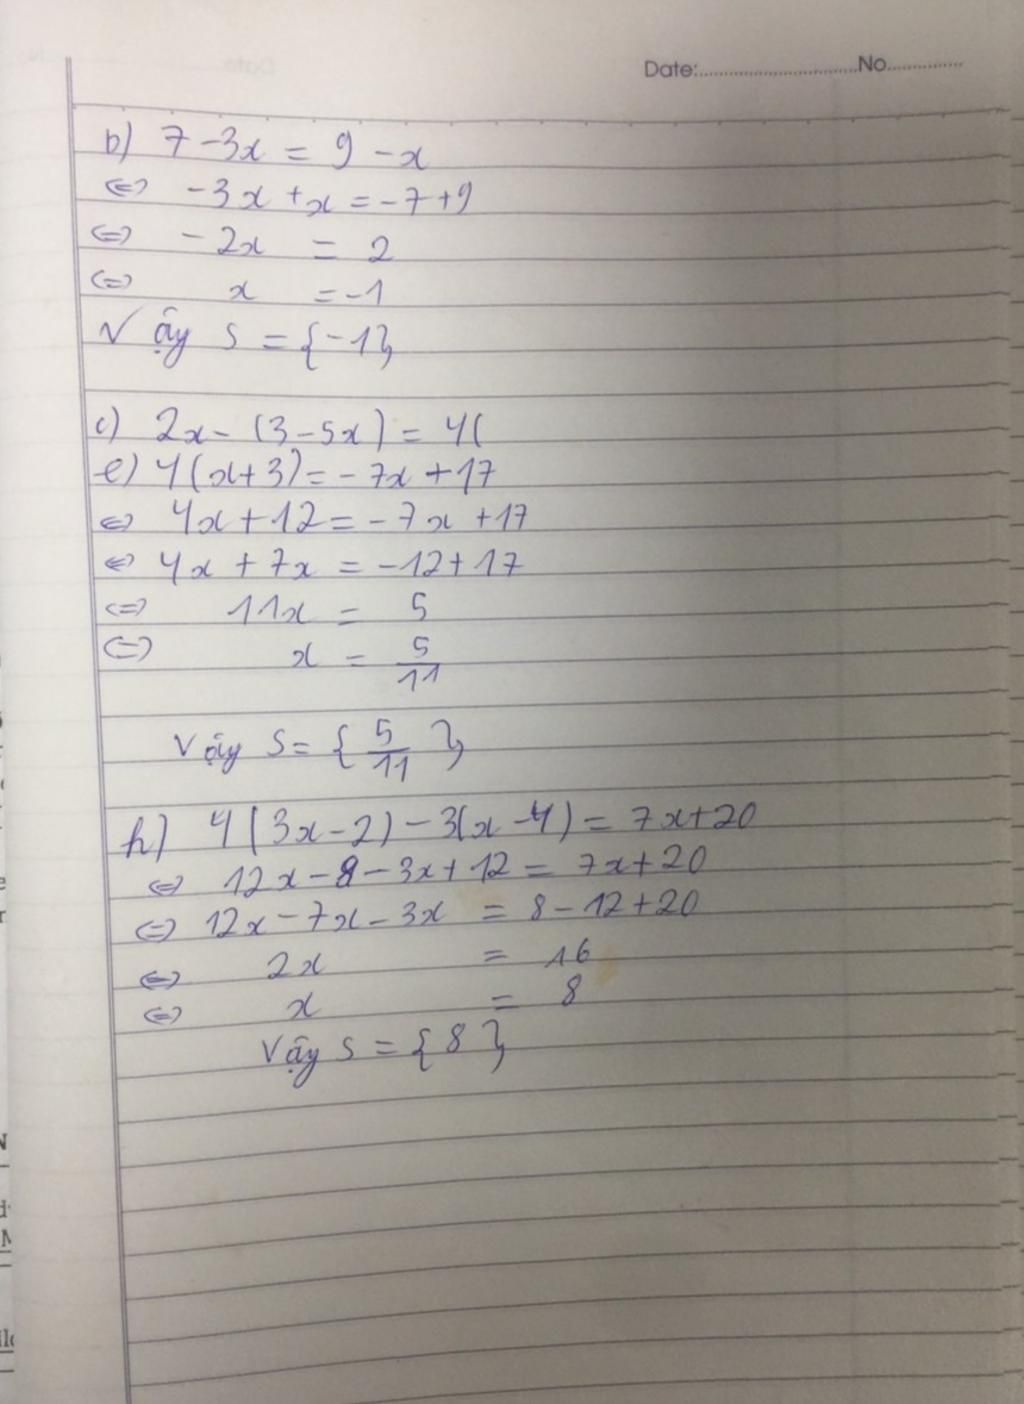 Date:..............................No..............
b) 7 - 3x = 9 - x
⇔ -3x + x = -7 + 9
⇔ -2x = 2
⇔ x = -1
Vậy S = {-1}
c) 2x - (3 - 5x) = 4(
e) 4(x + 3) = -7x + 17
⇔ 4x + 12 = -7x + 17
⇔ 4x + 7x = -12 + 17
⇔ 11x = 5
⇔ x = 5/11
Vậy S = {5/11}
h) 4(3x - 2) - 3(x - 4) = 7x + 20
⇔ 12x - 8 - 3x + 12 = 7x + 20
⇔ 12x - 7x - 3x = 8 - 12 + 20
⇔ 2x = 16
⇔ x = 8
Vậy S = {8}